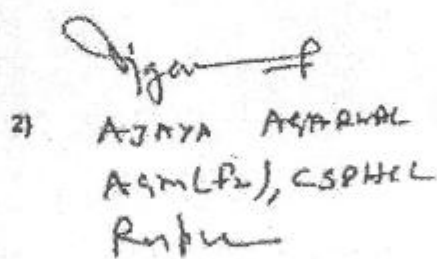 2) AJAYA AGARWAL
AGM(Fz), CSPHCL
Raipur